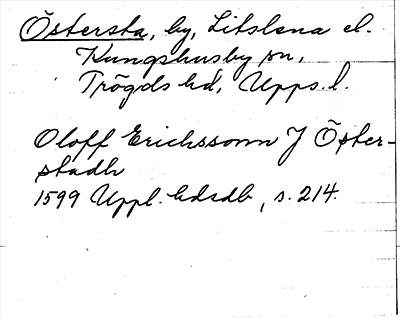 Östersta, by, Litslena el.
Kungshusby sn,
Trögds hd, Upps. l.
Oloff Erichssonn J Öster-
stadh
1599 Uppl. hdsdb, s. 214.